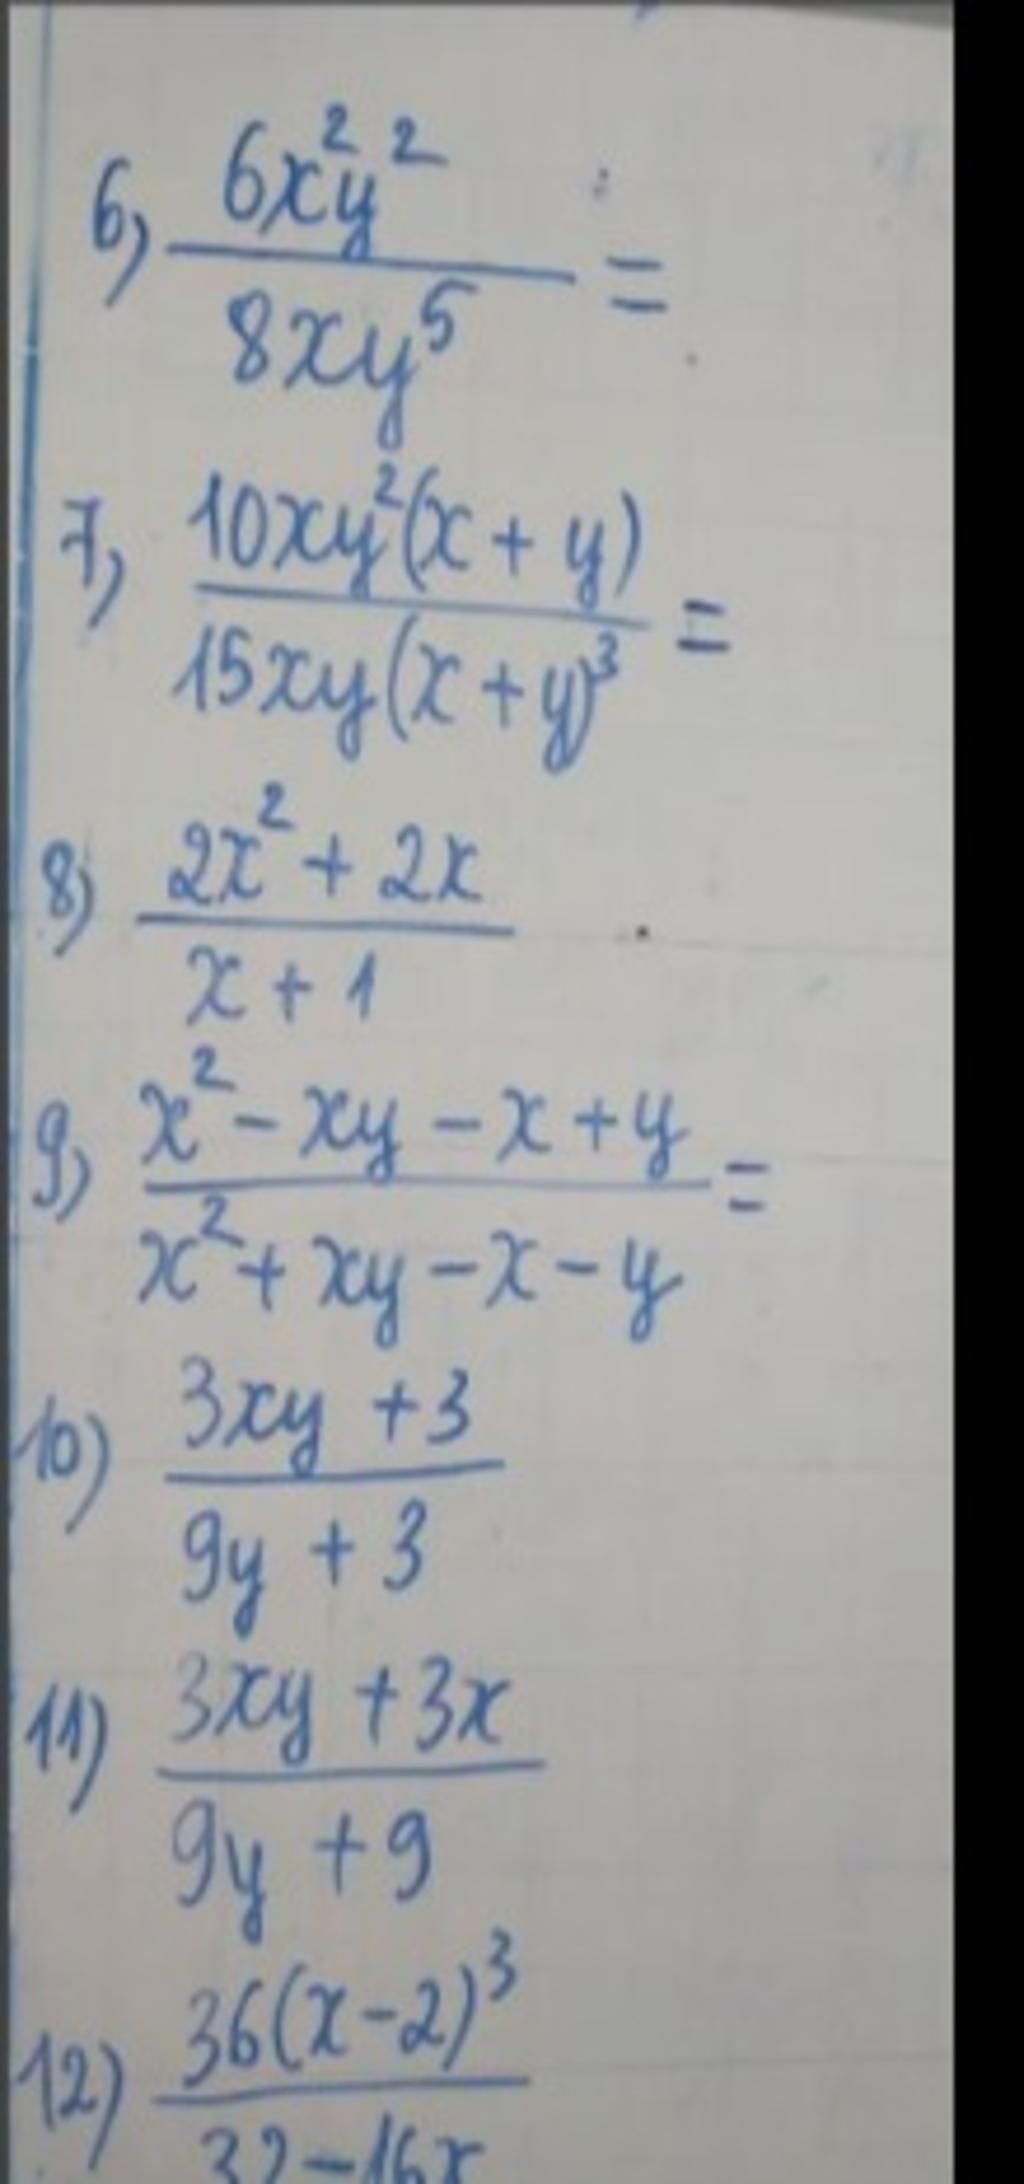 6) 6x²y² / 8xy⁵ =
7) 10xy²(x + y) / 15xy(x + y)³ =
8) 2x² + 2x / x + 1
9) x² - xy - x + y / x² + xy - x - y =
10) 3xy + 3 / 9y + 3
11) 3xy + 3x / 9y + 9
12) 36(x - 2)³ / 32 - 16x